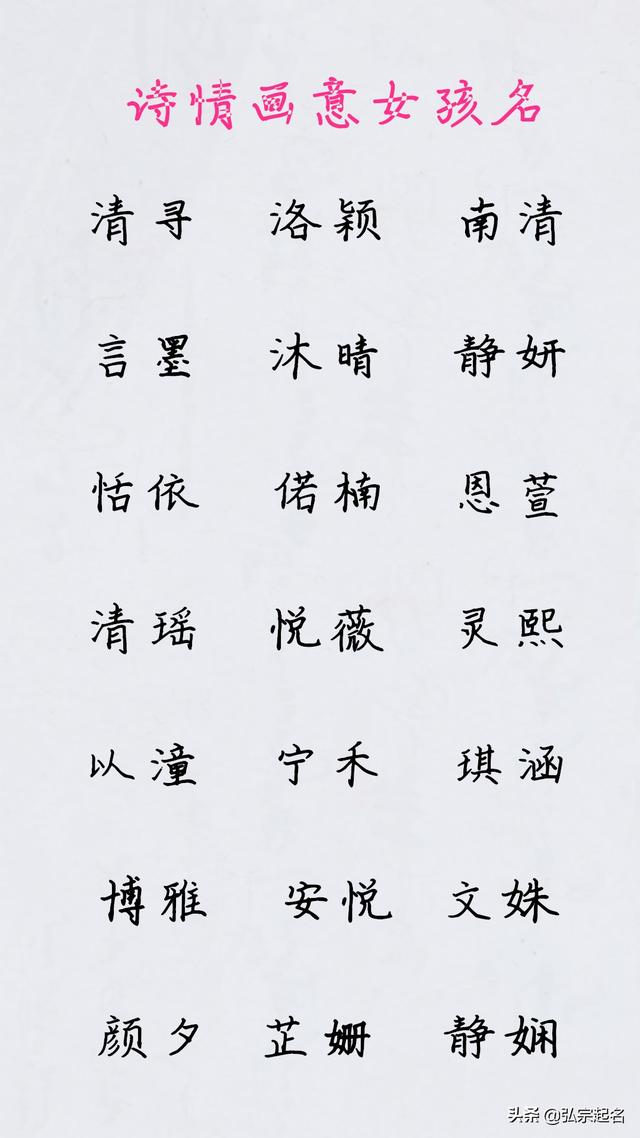 诗情画意女孩名
清寻 洛颖 南清
言墨 沐晴 静妍
恬依 偌楠 恩萱
清瑶 悦薇 灵熙
以潼 宁禾 琪涵
博雅 安悦 文姝
颜夕 芷姗 静娴
头条 @弘宗起名